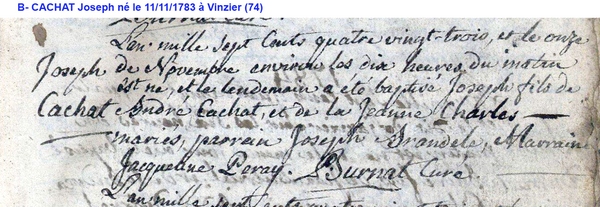 B- CACHAT Joseph né le 11/11/1783 à Vinzier (74)
Burnat Curé.
L'an mille sept Cents quatre vingt-trois, et le onze
Joseph de Novembre environ les dix heures du matin
est né, et le lendemain a été baptisé Joseph fils de
Cachat André Cachat, et de la Jeanne Charles
mariés, parrain Joseph Brandele, Marraine
Jacqueline Peray. Burnat Curé.
L'an mille sept cents quatre vingt